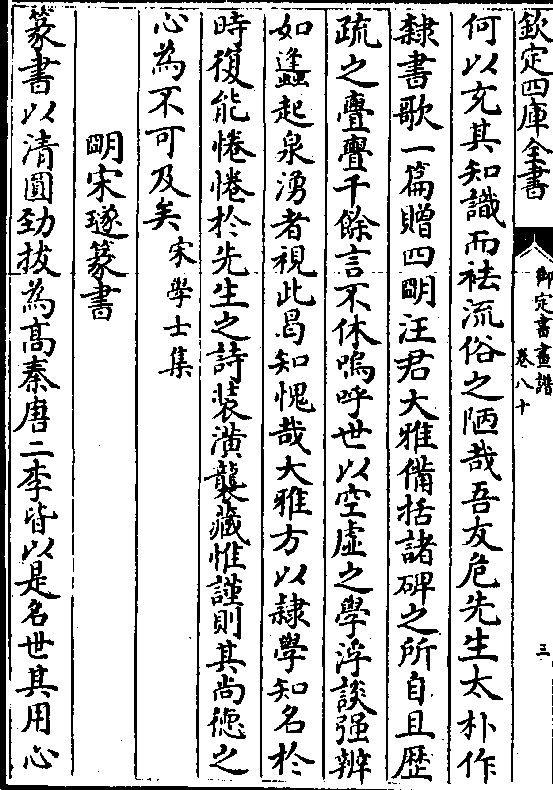 欽定四庫全書
御定書畫譜
卷八十
三
何以充其知識而袪流俗之陋哉吾友危先生太朴作
隸書歌一篇贈四明汪君大雅備括諸碑之所自且歴
疏之亹亹千餘言不休嗚呼世以空虛之學浮談强辨
如䗬起泉湧者視此曷知愧哉大雅方以隸學知名於
時復能惓惓於先生之詩裝潢襲藏惟謹則其尚德之
心為不可及矣 宋學士集
明宋璲篆書
篆書以清圓勁拔為髙秦唐二李皆以是名世其用心